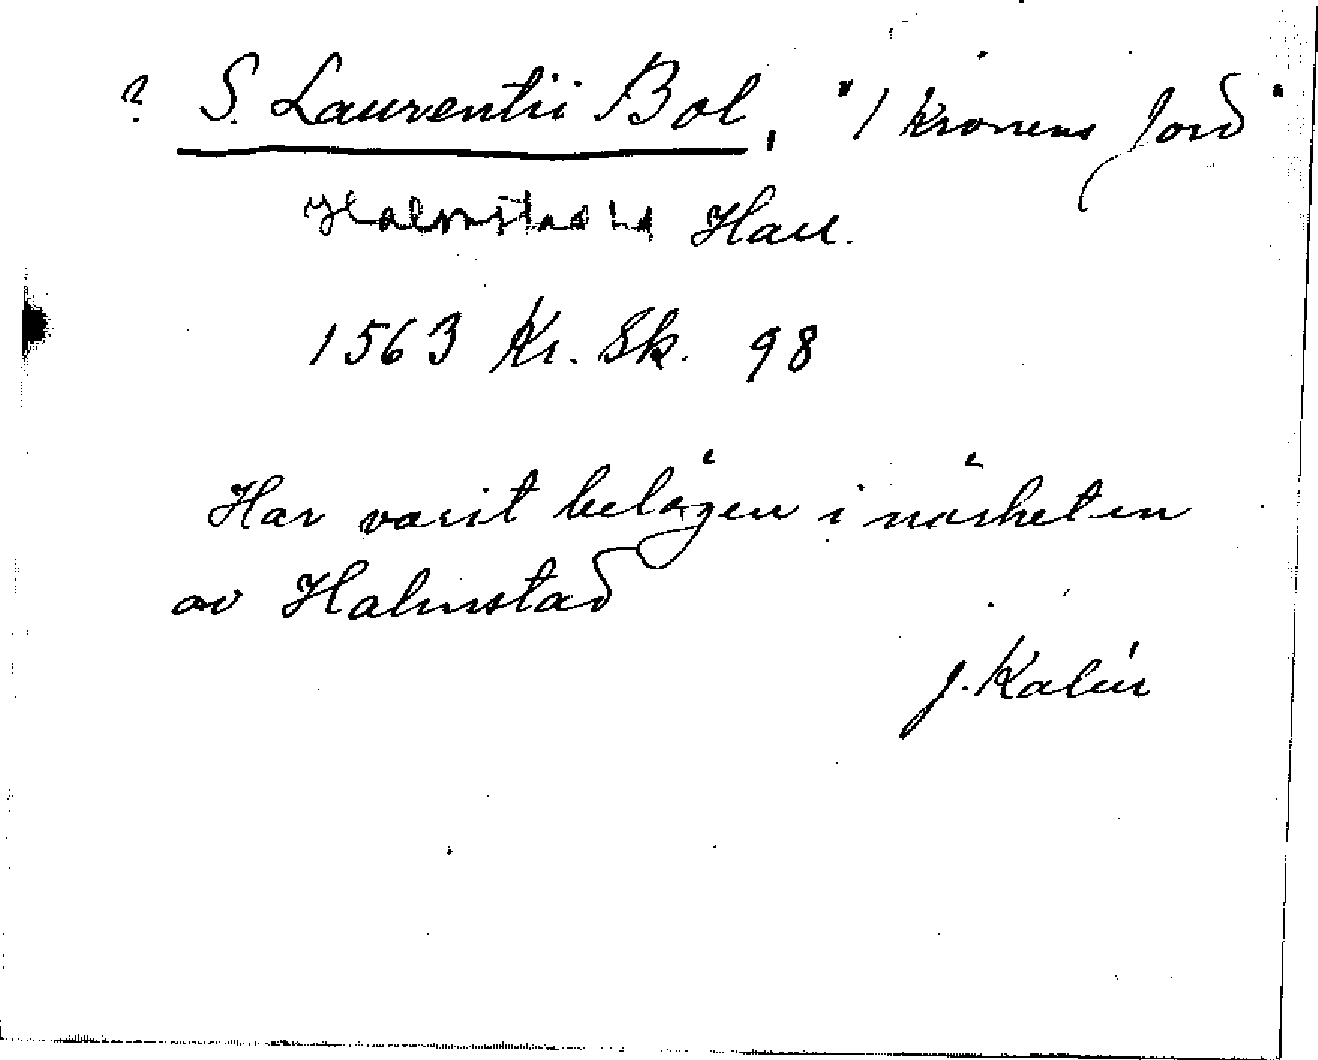 ? S. Laurentii Bol, "1 Kronens Jord"
Halmstads hd Hall.
1563 Kr. Sk. 98
Har varit belägen i närheten
av Halmstad
J. Kalén